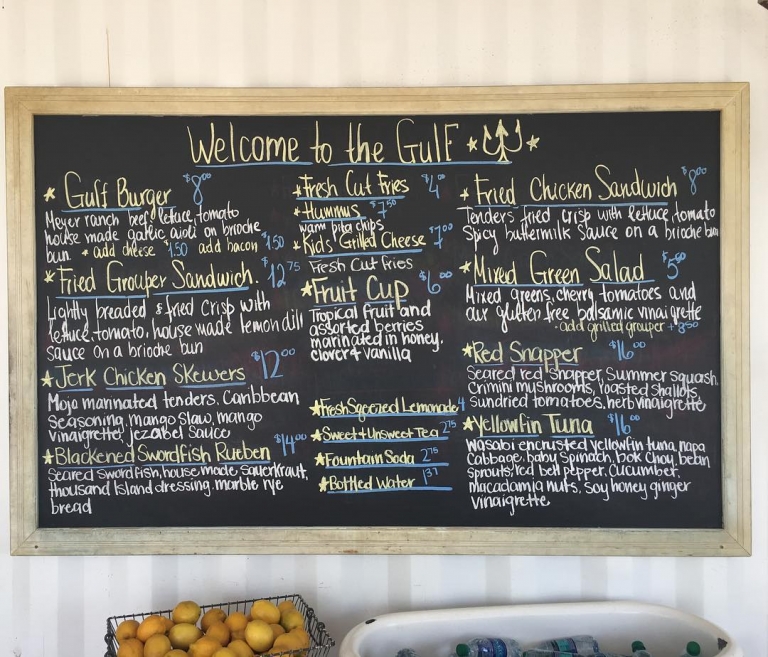 Welcome to the Gulf
Gulf Burger $8.00
Meyer ranch beef, lettuce, tomato
house made garlic aioli on brioche
bun + add cheese $1.50 add bacon $1.50
Fried Grouper Sandwich. $12.75
Lightly breaded & fried crisp with
lettuce, tomato, house made lemon dill
sauce on a brioche bun
Jerk Chicken Skewers $12.00
Mojo marinated tenders. Caribbean
seasoning, mango slaw, mango
vinaigrette, jezabel sauce
Blackened Swordfish Rueben $14.00
Seared swordfish, house made sauerkraut,
thousand Island dressing, marble rye
bread
Fresh Cut Fries $4.00
Hummus $7.50
warm pita chips
Kids' Grilled Cheese $7.00
Fresh Cut fries
Fruit Cup $6.00
Tropical fruit and
assorted berries
marinated in honey,
clover & vanilla
Fresh Sqeezed Lemonade 4
Sweet & Unsweet Tea 2.75
Fountain Soda 2.75
Bottled Water 1.37
Fried Chicken Sandwich $8.00
Tenders fried crisp with lettuce, tomato
Spicy buttermilk sauce on a brioche bun
Mixed Green Salad $5.00
Mixed greens, cherry tomatoes and
our glutten free balsamic vinaigrette
- add grilled grouper + 8.50
Red Snapper $16.00
Seared red snapper, Summer squash,
Crimini mushrooms, roasted shallots,
sundried tomatoes, herb vinaigrette
Yellowfin Tuna $16.00
Wasabi encrusted yellowfin tuna, napa
Cabbage, baby spinach, bok choy, bean
sprouts, red bell pepper, cucumber,
macadamia nuts, soy honey ginger
vinaigrette